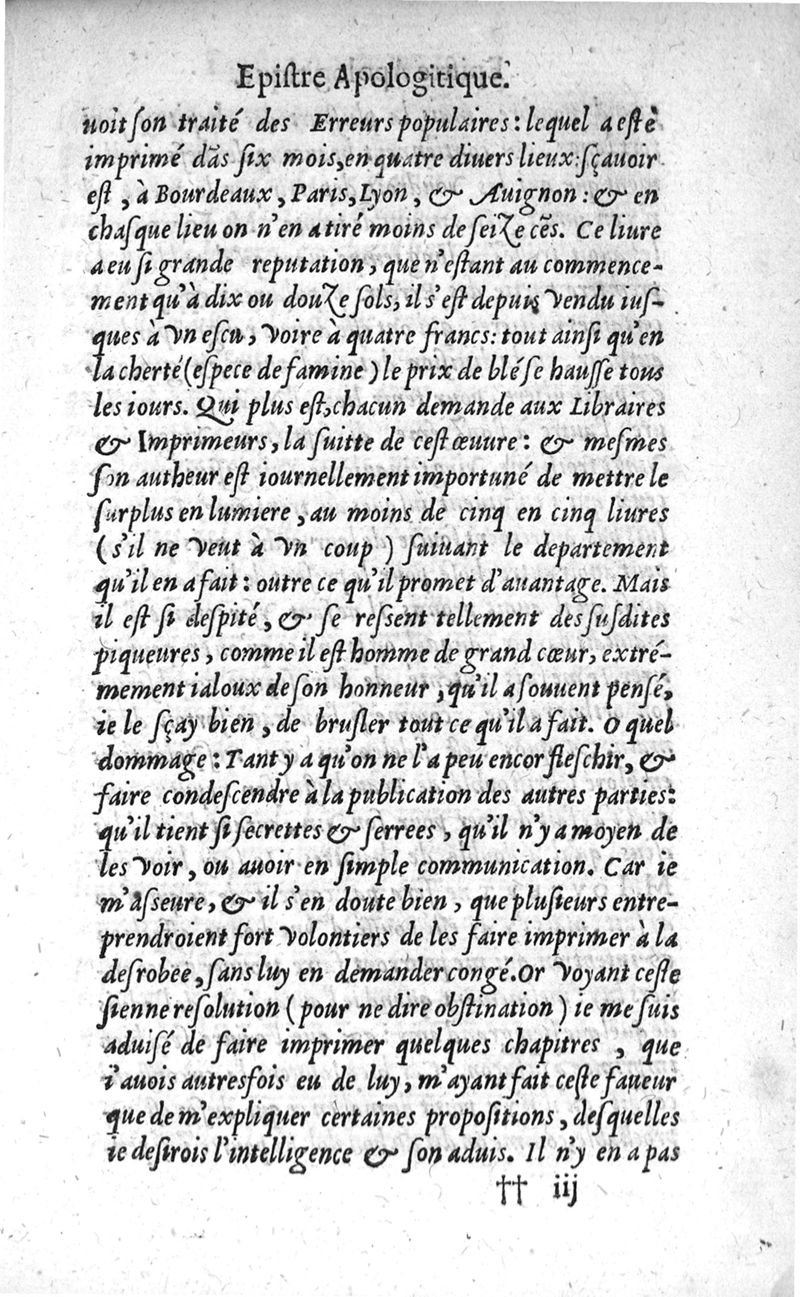 Epiſtre Apologitique.
uoit ſon traité des Erreurs populaires : lequel a eſté
imprimé dãs ſix mois, en quatre diuers lieux: ſçauoir
eſt, à Bourdeaux, Paris, Lyon, & Auignon : & en
chaſque lieu on n'en a tiré moins de ſeize cẽs. Ce liure
a eu ſi grande reputation, que n'eſtant au commence-
ment qu'à dix ou douze ſols, il s'eſt depuis vendu iuſ-
ques à vn eſcu, voire à quatre francs: tout ainſi qu'en
la cherté (eſpece de famine) le prix de blé ſe hauſſe tous
les iours. Qui plus eſt, chacun demande aux Libraires
& Imprimeurs, la ſuitte de ceſt œuure : & meſmes
ſon autheur eſt iournellement importuné de mettre le
ſurplus en lumiere, au moins de cinq en cinq liures
(s'il ne veut à vn coup) ſuiuant le departement
qu'il en a fait : outre ce qu'il promet d'auantage. Mais
il eſt ſi deſpité, & ſe reſsent tellement des ſuſdites
piqueures, comme il eſt homme de grand cœur, extré-
mement ialoux de ſon honneur, qu'il a ſouuent penſé,
ie le ſçay bien, de bruſler tout ce qu'il a fait. O quel
dommage : Tant y a qu'on ne l'a peu encor fleſchir, &
faire condeſcendre à la publication des autres parties:
qu'il tient ſi ſecrettes & ſerrees, qu'il n'y a moyen de
les voir, ou auoir en ſimple communication. Car ie
m'aſseure, & il s'en doute bien, que pluſieurs entre-
prendroient fort volontiers de les faire imprimer à la
deſrobee, ſans luy en demander congé. Or voyant ceſte
ſienne reſolution (pour ne dire obſtination) ie me ſuis
aduiſé de faire imprimer quelques chapitres, que
i'auois autresfois eu de luy, m'ayant fait ceſte faueur
que de m'expliquer certaines propoſitions, deſquelles
ie deſirois l'intelligence & ſon aduis. Il n'y en a pas
†† iij